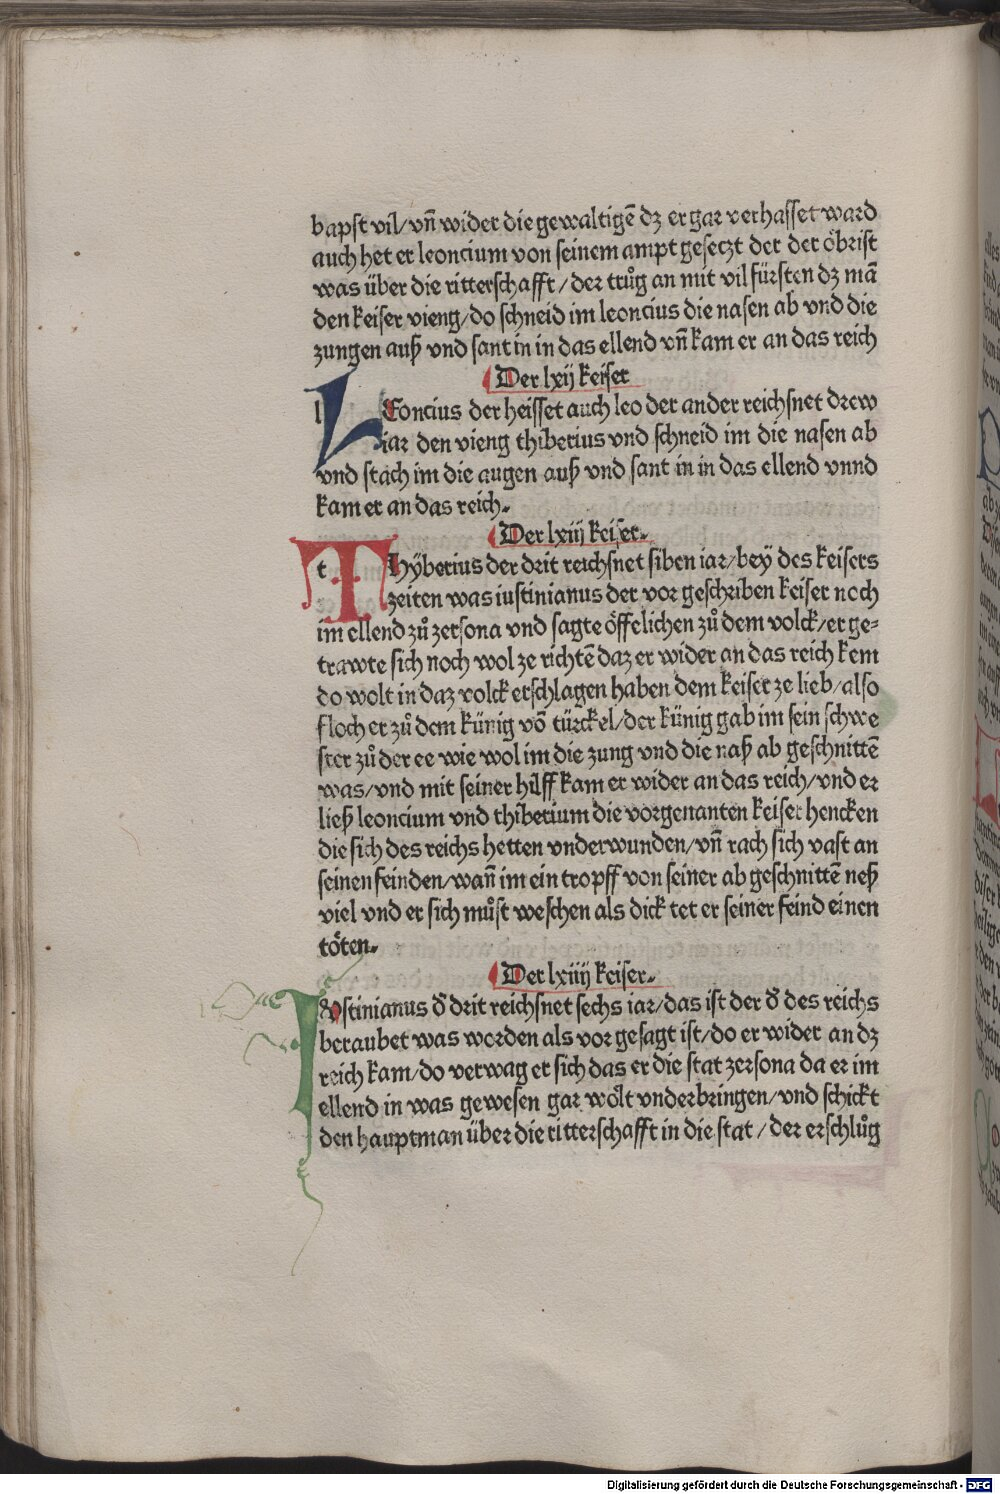 bapst vil/ vn̄ wider die gewaltigē dz er gar verhasset ward
auch het er leoncium von seinem ampt gesetzt der der öbrist
was über die ritterschafft/ der trůg an mit vil fürsten dz mā
den keiser vieng/ do schneid im leoncius die nasen ab vnd die
zungen auß vnd sant in in das ellend vn̄ kam er an das reich
Der lxij keiser
LEoncius der heisset auch leo der ander reichsnet drew
iar den vieng thiberius vnd schneid im die nasen ab
vnd stach im die augen auß vnd sant in in das ellend vnnd
kam er an das reich.
Der lxiij keiser.
THÿberius der drit reichsnet siben iar/ bey des keisers
zeiten was iustinianus der vor geschriben keiser noch
im ellend zů zersona vnd sagte öffelichen zů dem volck/ er ge=
trawte sich noch wol ze richtē daz er wider an das reich kem
do wolt in daz volck erschlagen haben dem keiser ze lieb/ also
floch er zů dem künig vō türckel/ der künig gab im sein schwe
ster zů der ee wie wol im die zung vnd die naß ab geschnittē
was/ vnd mit seiner hilff kam er wider an das reich/ vnd er
ließ leoncium vnd thiberium die vorgenanten keiser hencken
die sich des reichs hetten vnderwunden/ vn̄ rach sich vast an
seinen feinden/ wan̄ im ein tropff von seiner ab geschnittē neß
viel vnd er sich můst weschen als dick tet er seiner feind einen
töten.
Der lxiiij keiser.
IVstinianus d̄ drit reichsnet sechs iar/ das ist der d̄ des reichs
beraubet was worden als vor gesagt ist/ do er wider an dz
reich kam/ do verwag er sich das er die stat zersona da er im
ellend in was gewesen gar wölt vnderbringen/ vnd schickt
den hauptman über die ritterschafft in die stat/ der erschlůg
Digitalisierung gefördert durch die Deutsche Forschungsgemeinschaft - DFG